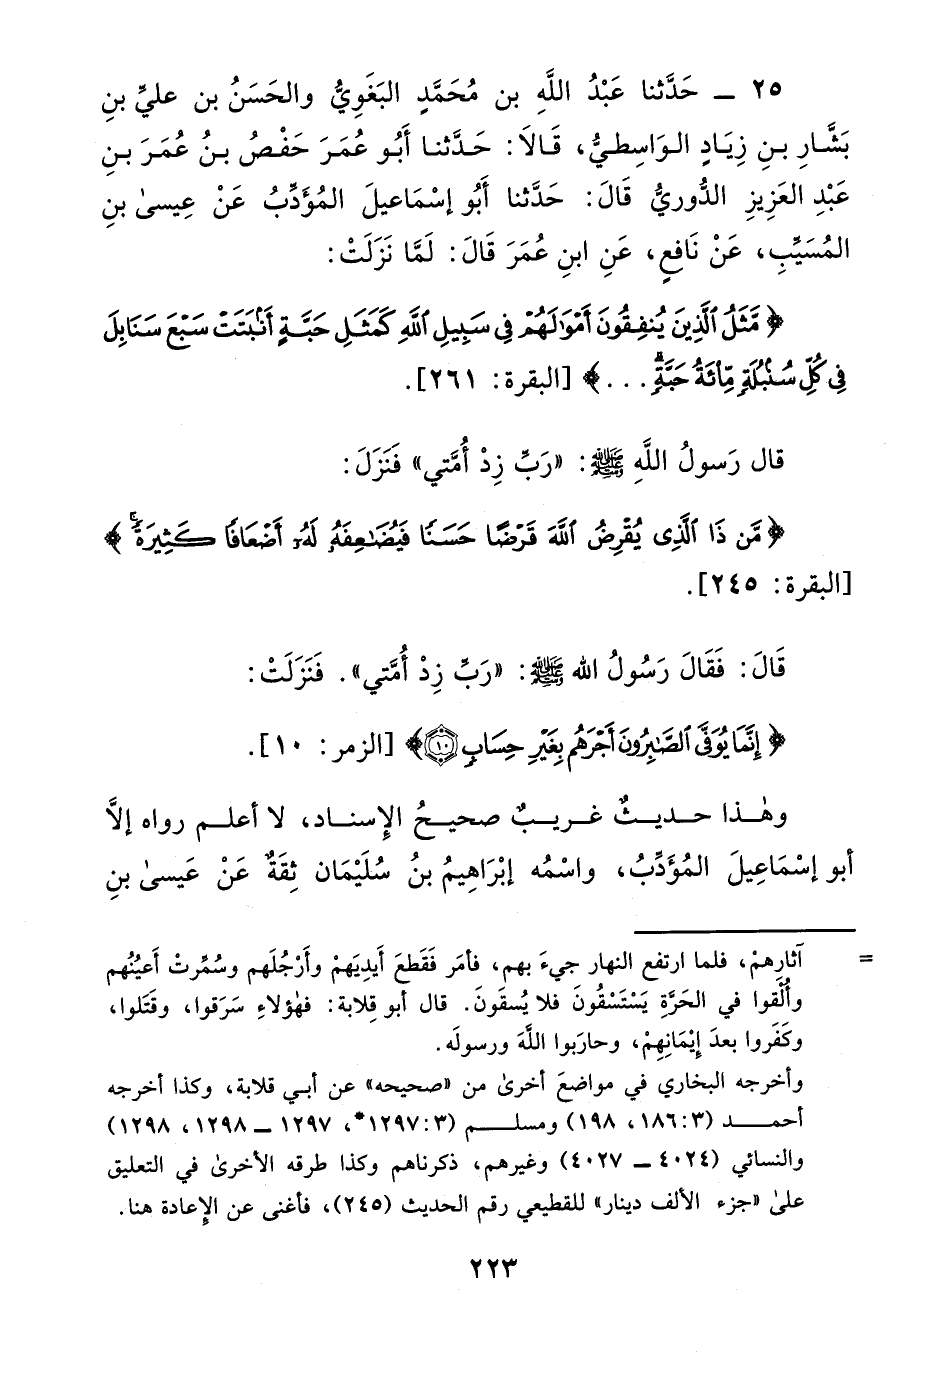 ٢٥ ـ حَدَّثنا عَبْدُ اللَّهِ بن مُحَمَّدٍ البَغَوِيُّ والحَسَنُ بن عليِّ بنِ
بَشَّارِ بنِ زِيَادٍ الوَاسِطيُّ، قَالاَ: حَدَّثنا أَبُو عُمَرَ حَفْصُ بنُ عُمَرَ بنِ
عَبْدِ العَزِيزِ الدُّوريُّ قَالَ: حَدَّثنا أَبُو إسْمَاعيلَ المُؤَدِّبُ عَنْ عِيسىٰ بنِ
المُسَيِّبِ، عَنْ نَافعٍ، عَنِ ابنِ عُمَرَ قَالَ: لَمَّا نَزَلَتْ:
﴿ مَّثَلُ ٱلَّذِينَ يُنفِقُونَ أَمْوَٰلَهُمْ فِي سَبِيلِ ٱللَّهِ كَمَثَلِ حَبَّةٍ أَنۢبَتَتْ سَبْعَ سَنَابِلَ
فِي كُلِّ سُنۢبُلَةٍ مِّائَةُ حَبَّةٍۗ . . . ﴾ [البقرة: ٢٦١].
قال رَسولُ اللَّهِ ﷺ: «رَبِّ زِدْ أُمَّتي» فَنَزَلَ:
﴿ مَّن ذَا ٱلَّذِى يُقْرِضُ ٱللَّهَ قَرْضًا حَسَنًا فَيُضَٰعِفَهُۥ لَهُۥٓ أَضْعَافًا كَثِيرَةً ۚ ﴾
[البقرة: ٢٤٥].
قَالَ: فَقَالَ رَسُولُ الله ﷺ: «رَبِّ زِدْ أُمَّتي». فَنَزَلَتْ:
﴿ إِنَّمَا يُوَفَّى ٱلصَّٰبِرُونَ أَجْرَهُم بِغَيْرِ حِسَابٍ ۝١٠ ﴾ [الزمر: ١٠].
وهٰذا حديثٌ غريبٌ صحيحُ الإِسناد، لا أعلم رواه إلاَّ
أبو إسْمَاعِيلَ المُؤَدِّبُ، واسْمُه إبْرَاهِيمُ بنُ سُلَيْمَان ثِقَةٌ عَنْ عَيسىٰ بنِ
= آثارِهمْ، فلما ارتفع النهار جيءَ بهم، فأمَر فَقَطعَ أَيدِيَهمْ وأَرْجُلَهم وسُمِّرتْ أَعيُنُهم
وأُلْقوا في الحَرَّةِ يَسْتَسْقُونَ فلا يُسقَونَ. قال أبو قِلابة: فهٰؤلاءِ سَرَقوا، وقَتَلوا،
وكَفَروا بعدَ إِيْمَانِهِمْ، وحارَبوا اللَّهَ ورسولَه.
وأخرجه البخاري في مواضعَ أخرىٰ من «صحيحه» عن أبي قلابة، وكذا أخرجه
أحمد (١٨٦:٣، ١٩٨) ومسلم (١٢٩٧:٣*، ١٢٩٧ ـ ١٢٩٨، ١٢٩٨)
والنسائي (٤٠٢٤ ـ ٤٠٢٧) وغيرهم، ذكرناهم وكذا طرقه الأخرىٰ في التعليق
علىٰ «جزء الألف دينار» للقطيعي رقم الحديث (٢٤٥)، فأغنى عن الإِعادة هنا.
٢٢٣